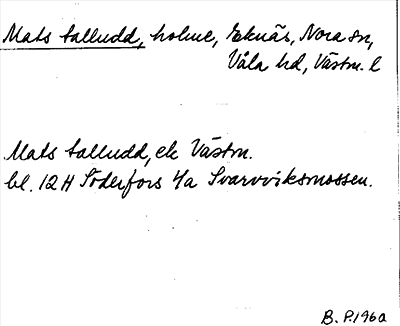 Mats talludd, holme, Eknäs, Nora sn,
Våla hd, Västm. l
Mats talludd, ek Västm.
bl. 12H Söderfors 4/a Svarvviksmossen.
B. P. 1960